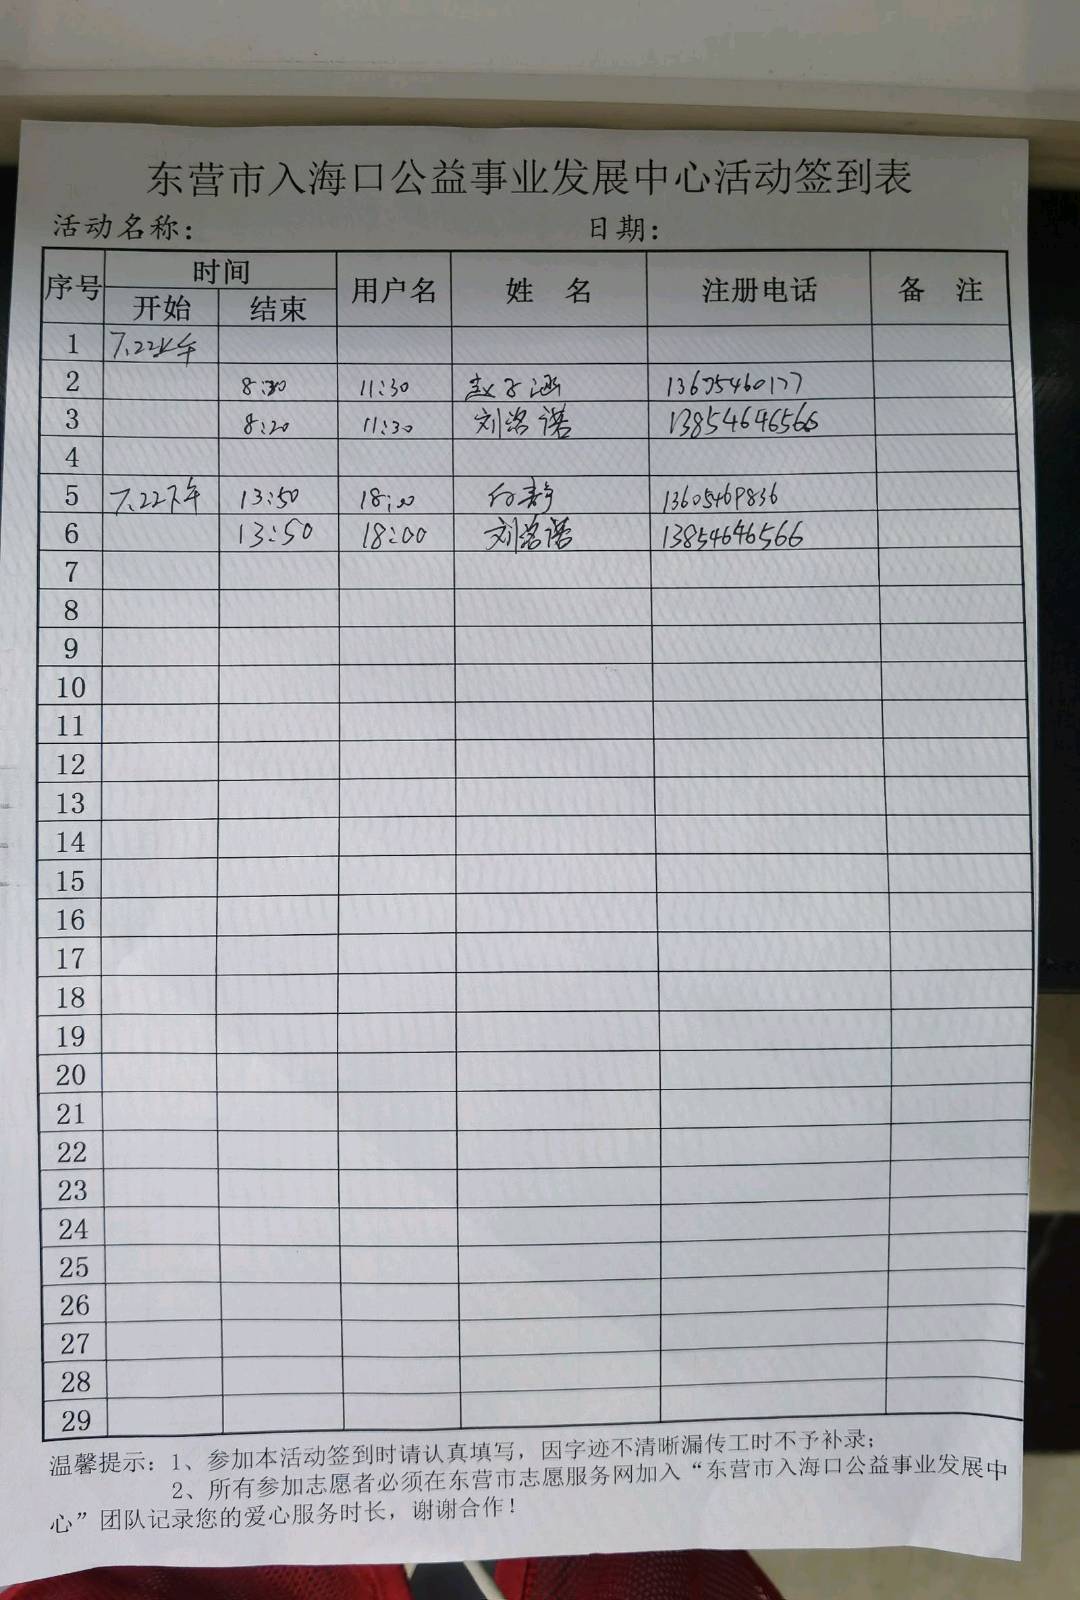 东营市入海口公益事业发展中心活动签到表
活动名称： 日期：
序号 时间 用户名 姓 名 注册电话 备 注
开始 结束
1 7.22上午
2 8:30 11:30 赵子涵 13675460177
3 8:20 11:30 刘洺诺 13854646566
4
5 7.22下午 13:50 18:00 13605469836
6 13:50 18:00 刘洺诺 13854646566
7
8
9
10
11
12
13
14
15
16
17
18
19
20
21
22
23
24
25
26
27
28
29
温馨提示：1、参加本活动签到时请认真填写，因字迹不清晰漏传工时不予补录；
2、所有参加志愿者必须在东营市志愿服务网加入“东营市入海口公益事业发展中
心”团队记录您的爱心服务时长，谢谢合作！